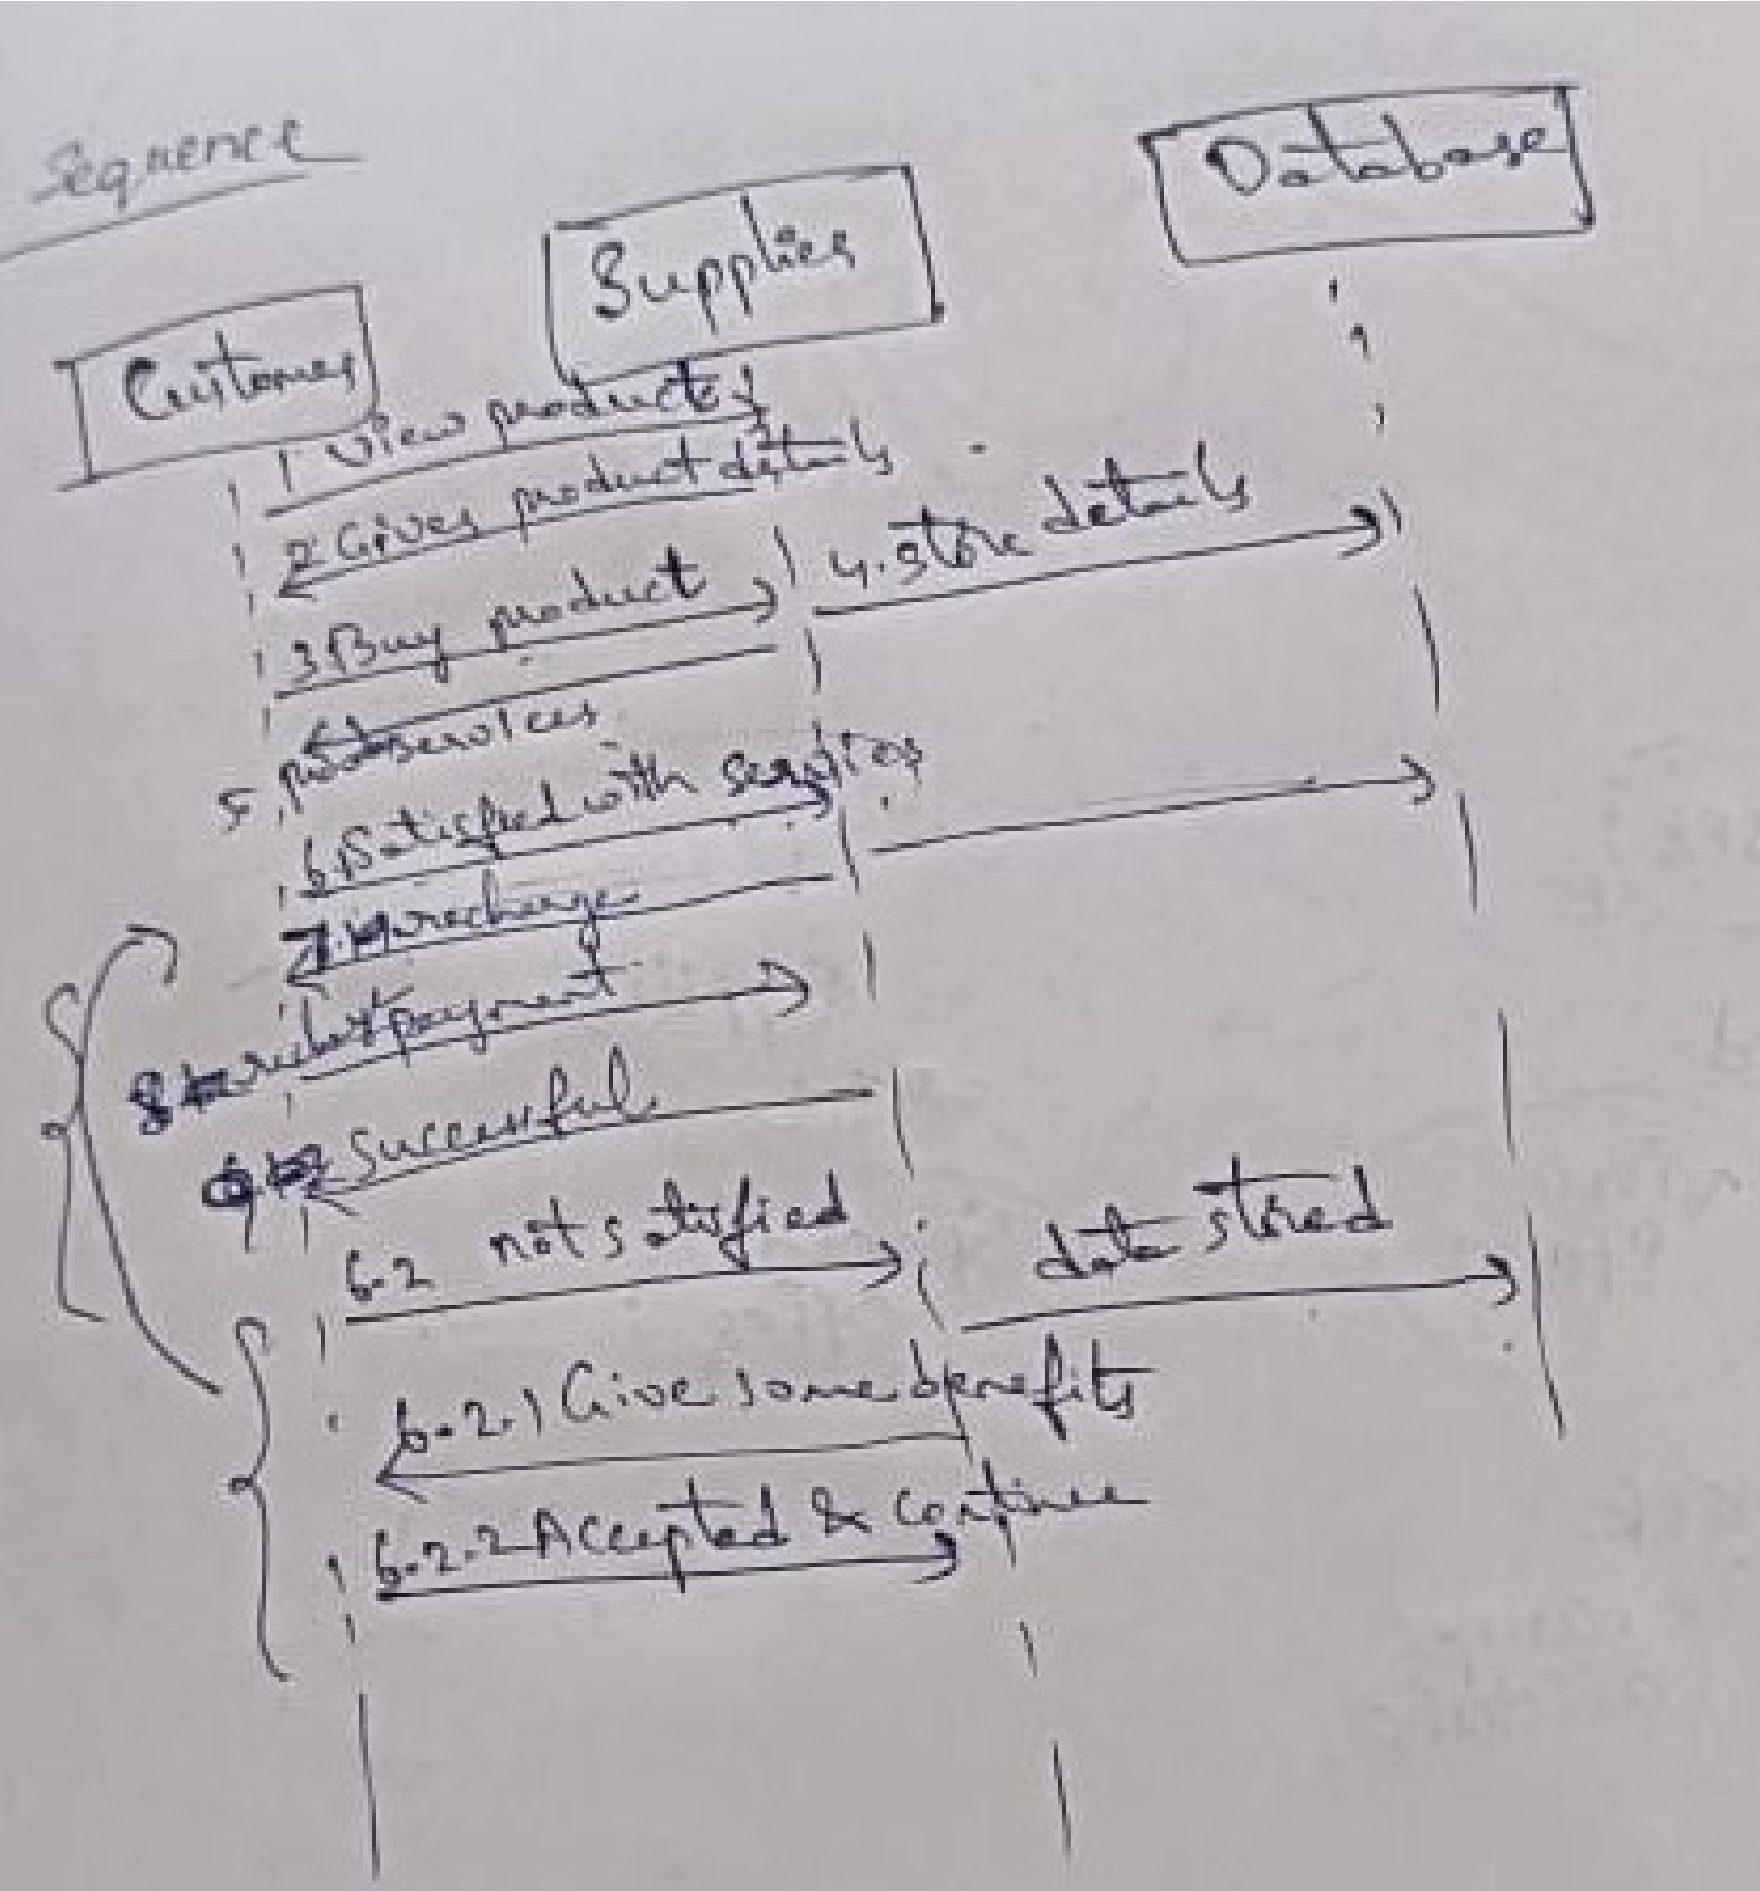 Sequence
Customer
Supplier
Database
1 View products
2 Gives product details
3 Buy product
4. store details
5. services
6.1 Satisfied with services
7. recharge
8 payment
9. Successful
6.2 not satisfied
data stored
6.2.1 Give some benefits
6.2.2 Accepted & continue